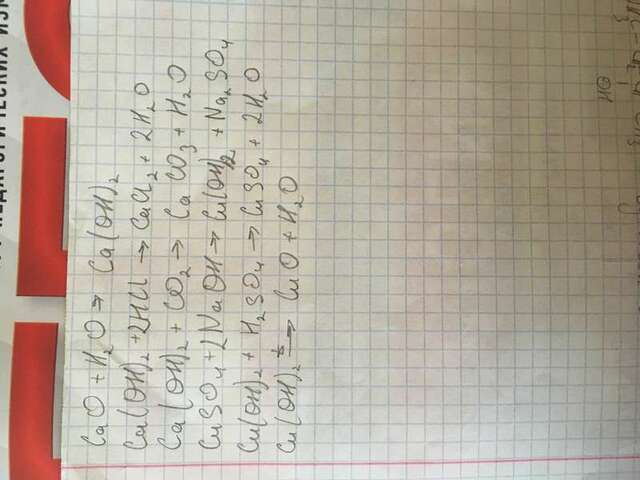 CaO + H₂O → Ca(OH)₂
Ca(OH)₂ + 2HCl → CaCl₂ + 2H₂O
Ca(OH)₂ + CO₂ → CaCO₃ + H₂O
CuSO₄ + 2NaOH → Cu(OH)₂ + Na₂SO₄
Cu(OH)₂ + H₂SO₄ → CuSO₄ + 2H₂O
Cu(OH)₂ →ᵗ CuO + H₂O
OH